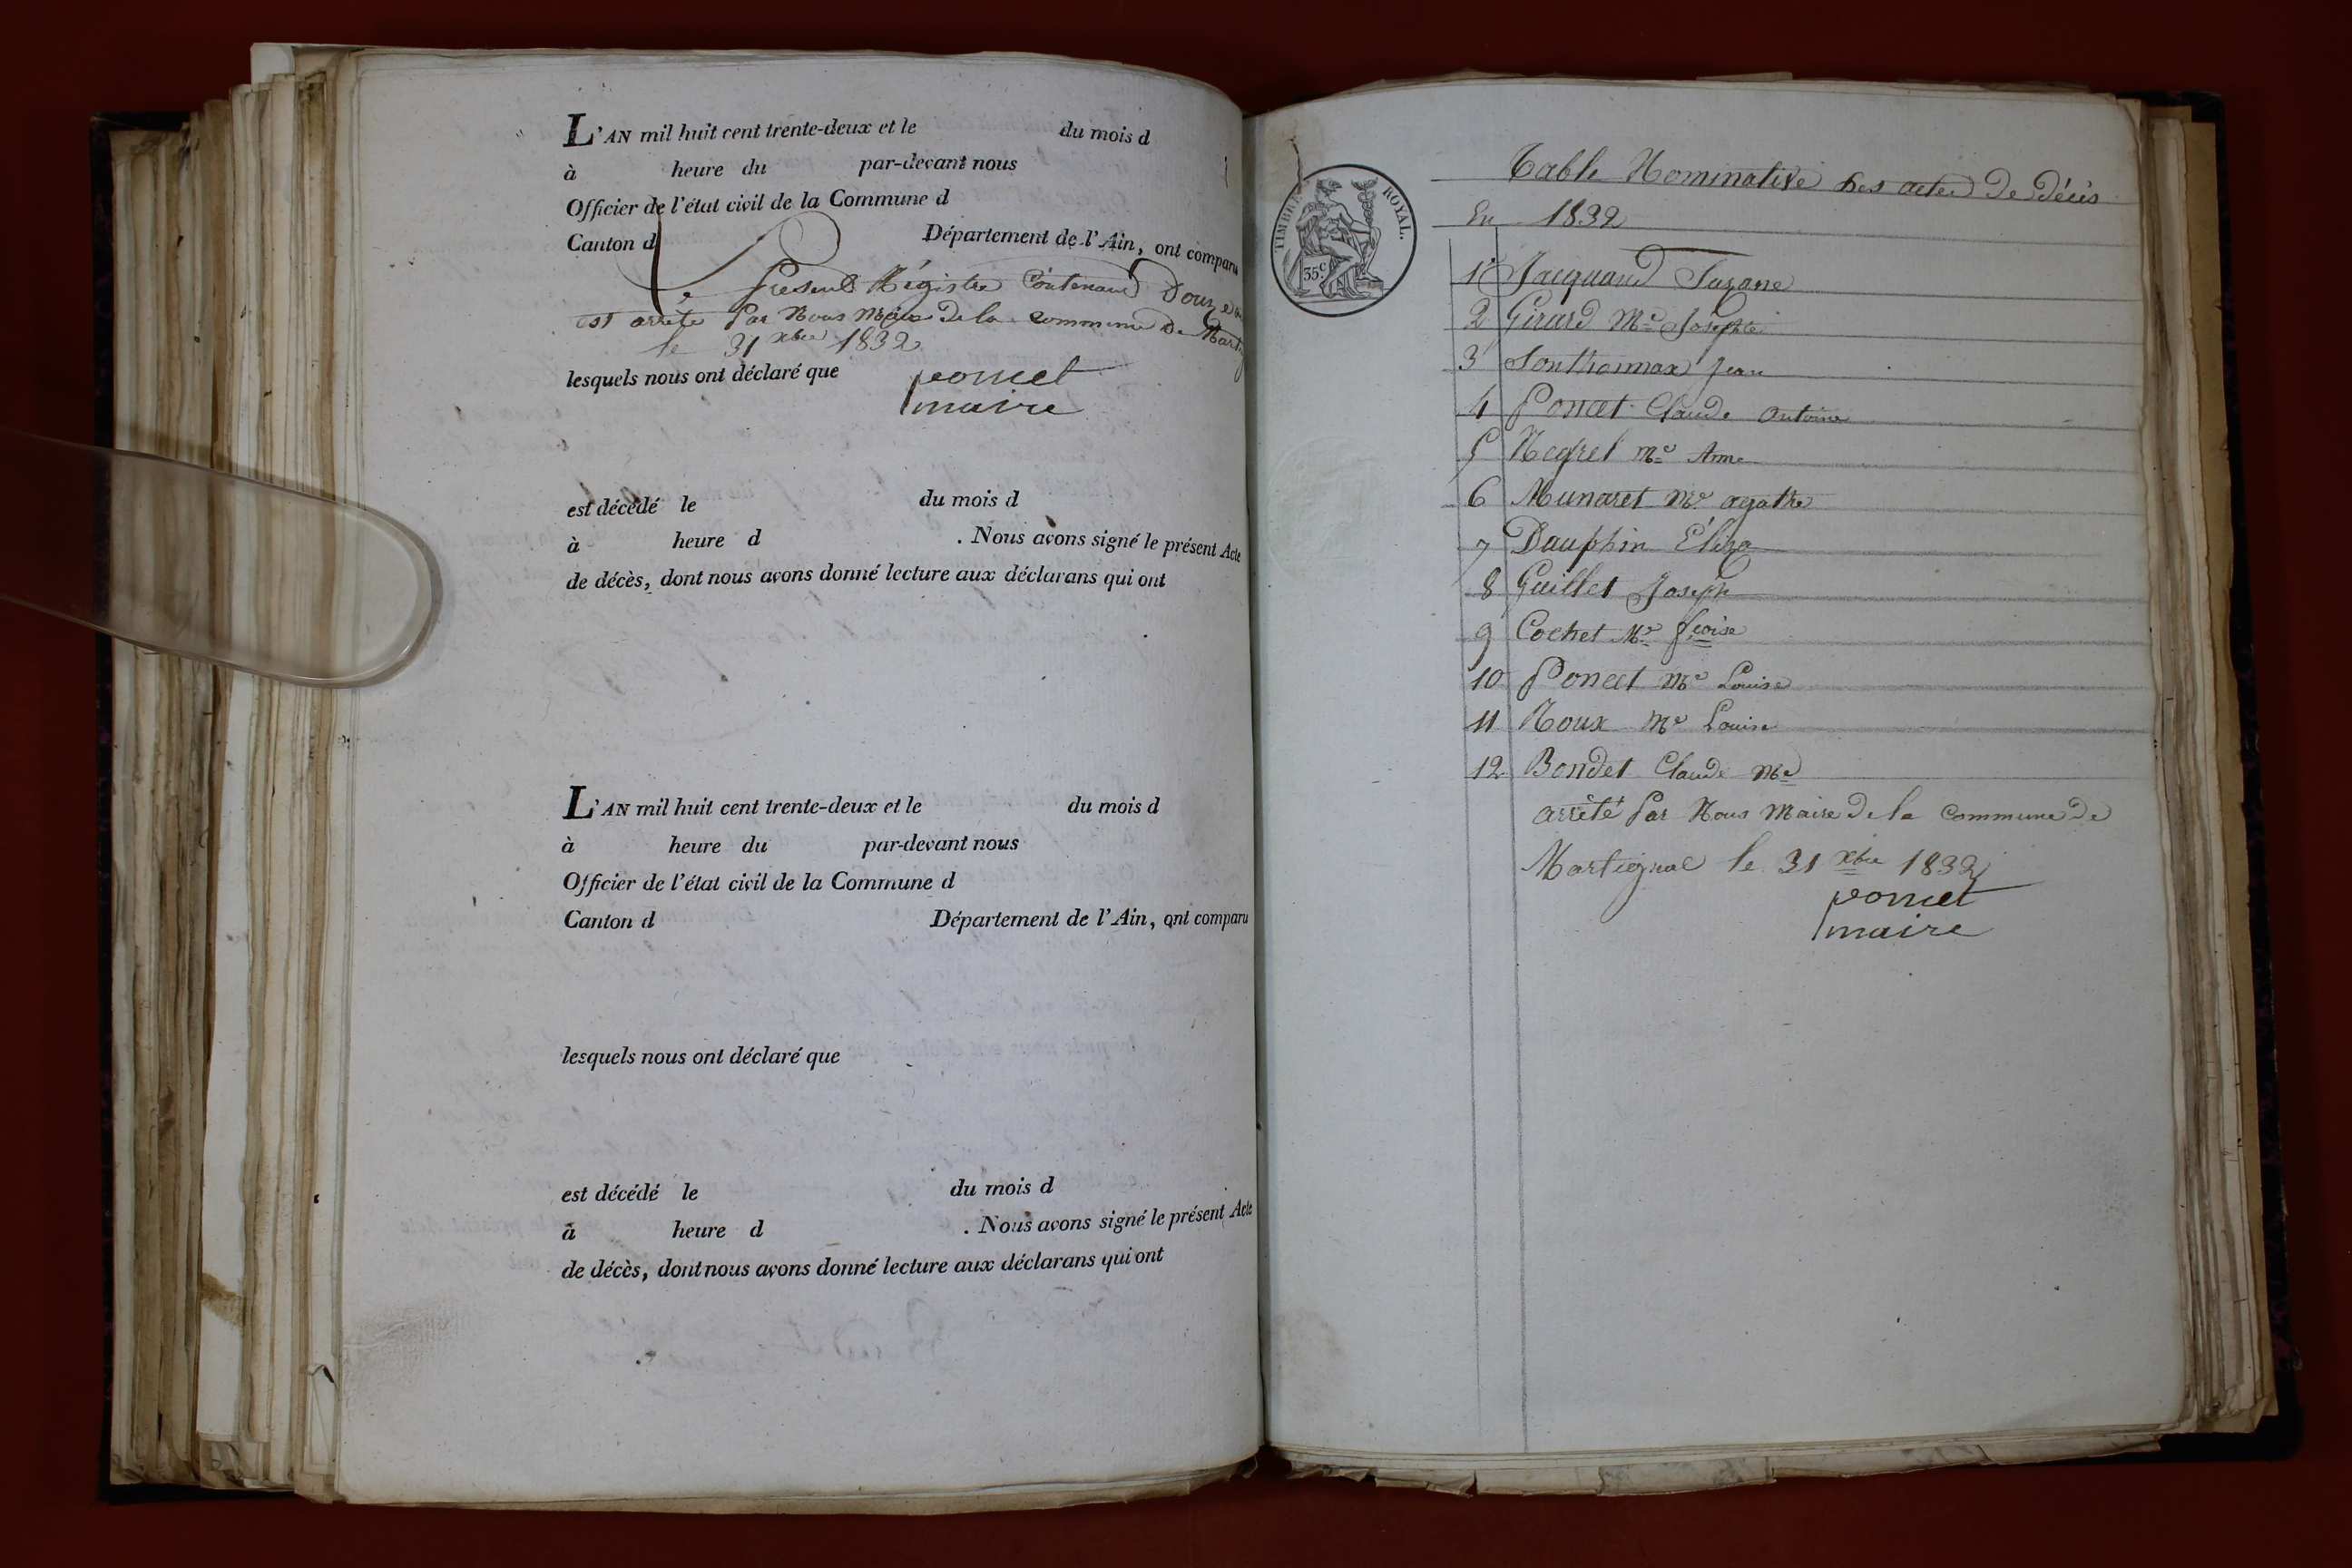 L'AN mil huit cent trente-deux et le du mois d
à heure du par-devant nous
Officier de l'état civil de la Commune d
Canton d Département de l'Ain, ont comparu
Le présent Régistre Contenant Douze
est arrêté Par Nous Maire De la commune de
le 31 xbre 1832
lesquels nous ont déclaré que
poncet
maire
est décédé le du mois d
à heure d . Nous avons signé le présent Acte
de décès, dont nous avons donné lecture aux déclarans qui ont
L'AN mil huit cent trente-deux et le du mois d
à heure du par-devant nous
Officier de l'état civil de la Commune d
Canton d Département de l'Ain, ont comparu
lesquels nous ont déclaré que
est décédé le du mois d
à heure d . Nous avons signé le présent Acte
de décès, dont nous avons donné lecture aux déclarans qui ont
TIMBRE ROYAL.
35c.
Table Nominative des actes De Décès
En 1832
1 Jacquand
2 Girard Mie Josephte
3 Sonthonnax Jean
4 Poncet Claude Antoine
5 Negret Mie Anne
6 Munaret Mie agathe
7 Dauphin Éliza
8 Guillet Joseph
9 Cochet Mie fçoise
10 Poncet Mie Louise
11 Roux Mie Louise
12 Bondet Claude Mie
arrêté Par Nous Maire De la Commune De
Martignat le 31 xbre 1832
poncet
maire